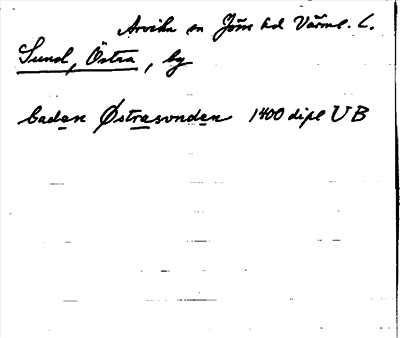 Arvika sn Jöss hd Värml. l.
Sund, Östra, by
badæn Østrasvndæn 1400 dipl UB